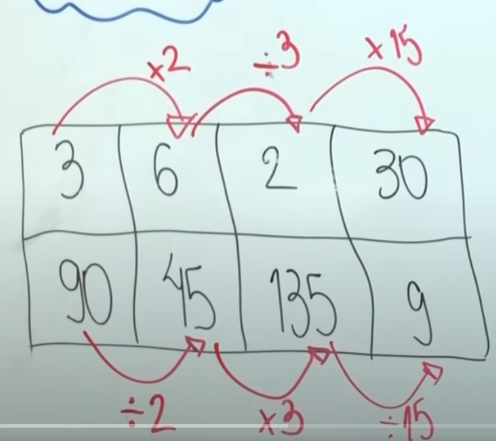 ×2 ÷3 ×15
3 6 2 30
90 45 135 9
÷2 ×3 ÷15